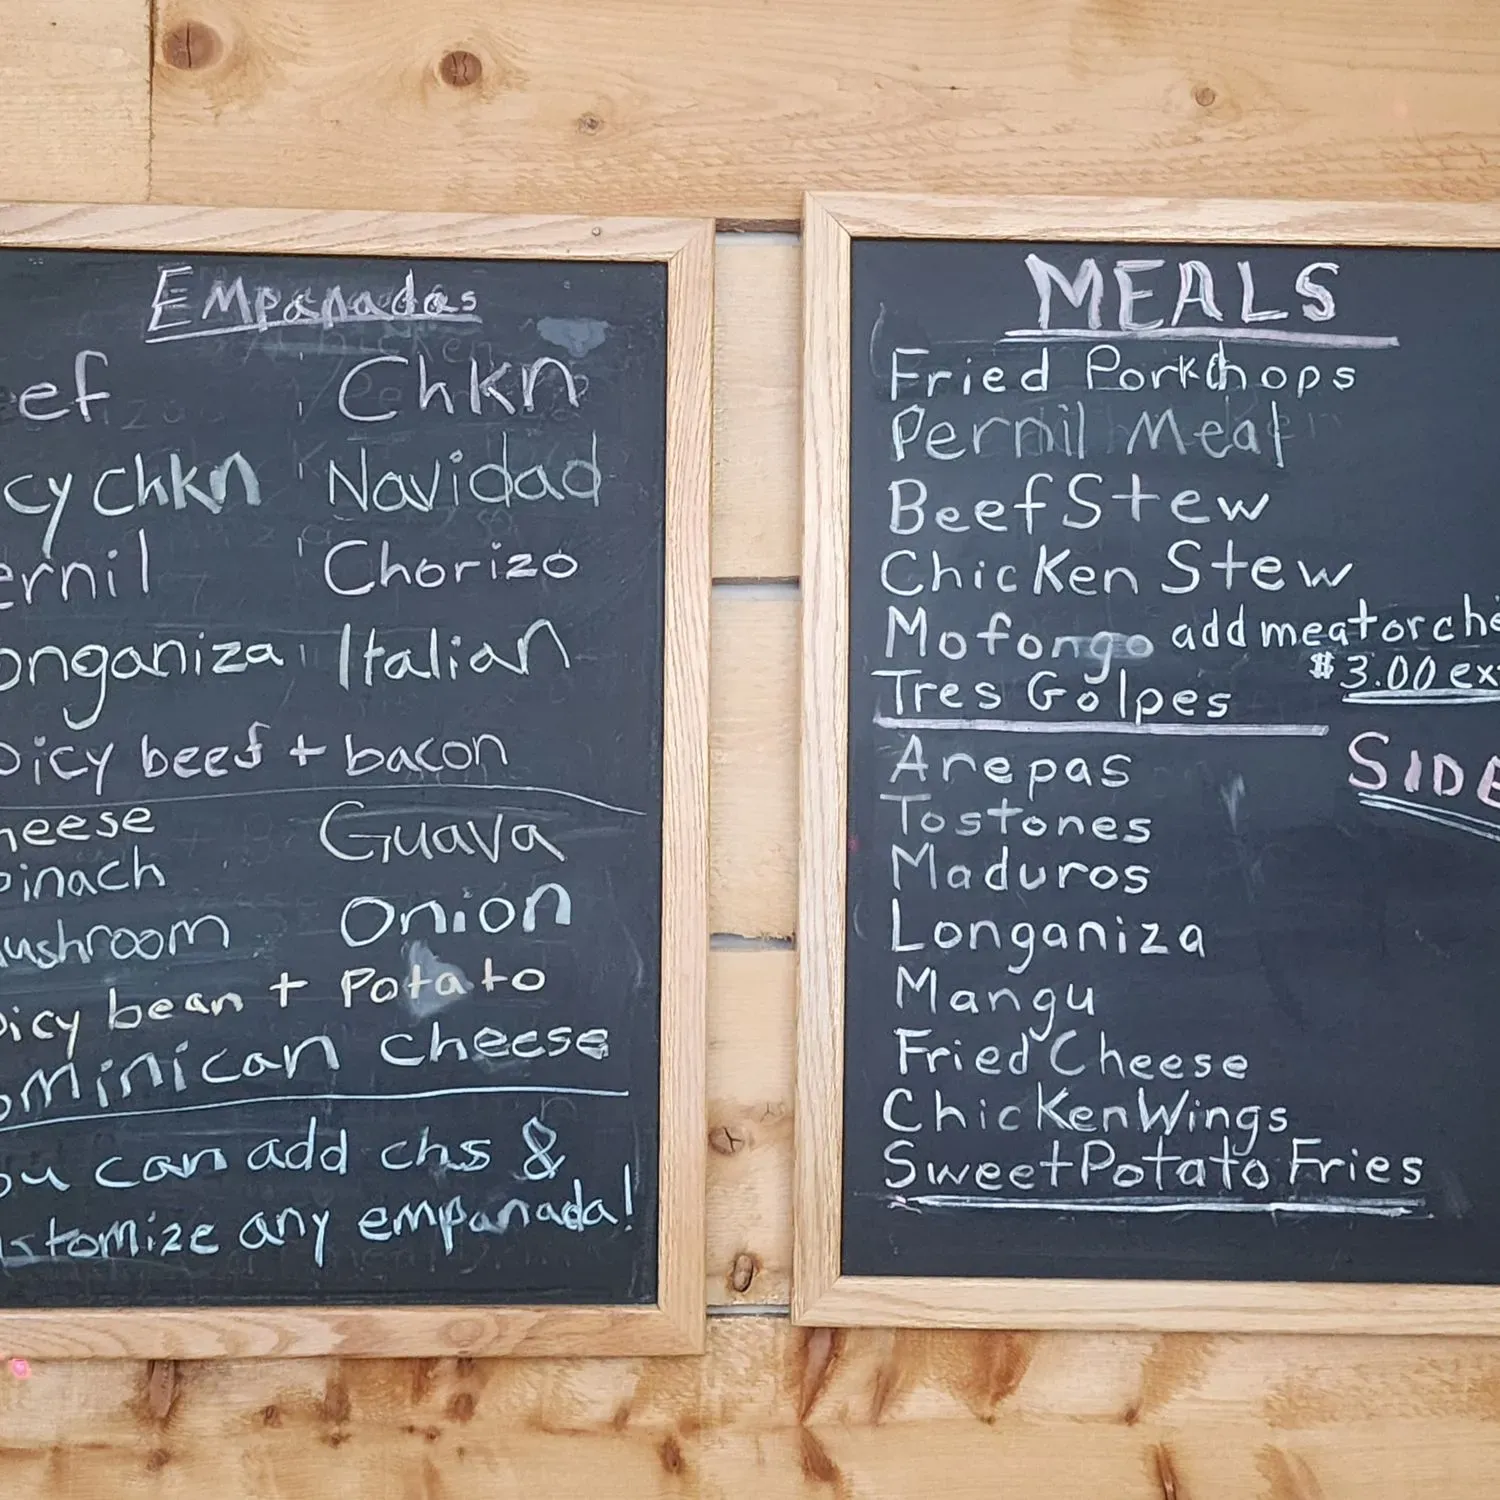 Empanadas
ef Chkn
cy chkn Navidad
ernil Chorizo
onganiza Italian
icy beef + bacon
heese Guava
inach Onion
ushroom
icy bean + Potato
ominican cheese
ou can add chs &
stomize any empanada!
MEALS
Fried Porkchops
Pernil Meal
Beef Stew
Chicken Stew
Mofongo add meat or che
$3.00 ex
Tres Golpes
SIDE
Arepas
Tostones
Maduros
Longaniza
Mangu
Fried Cheese
Chicken Wings
Sweet Potato Fries